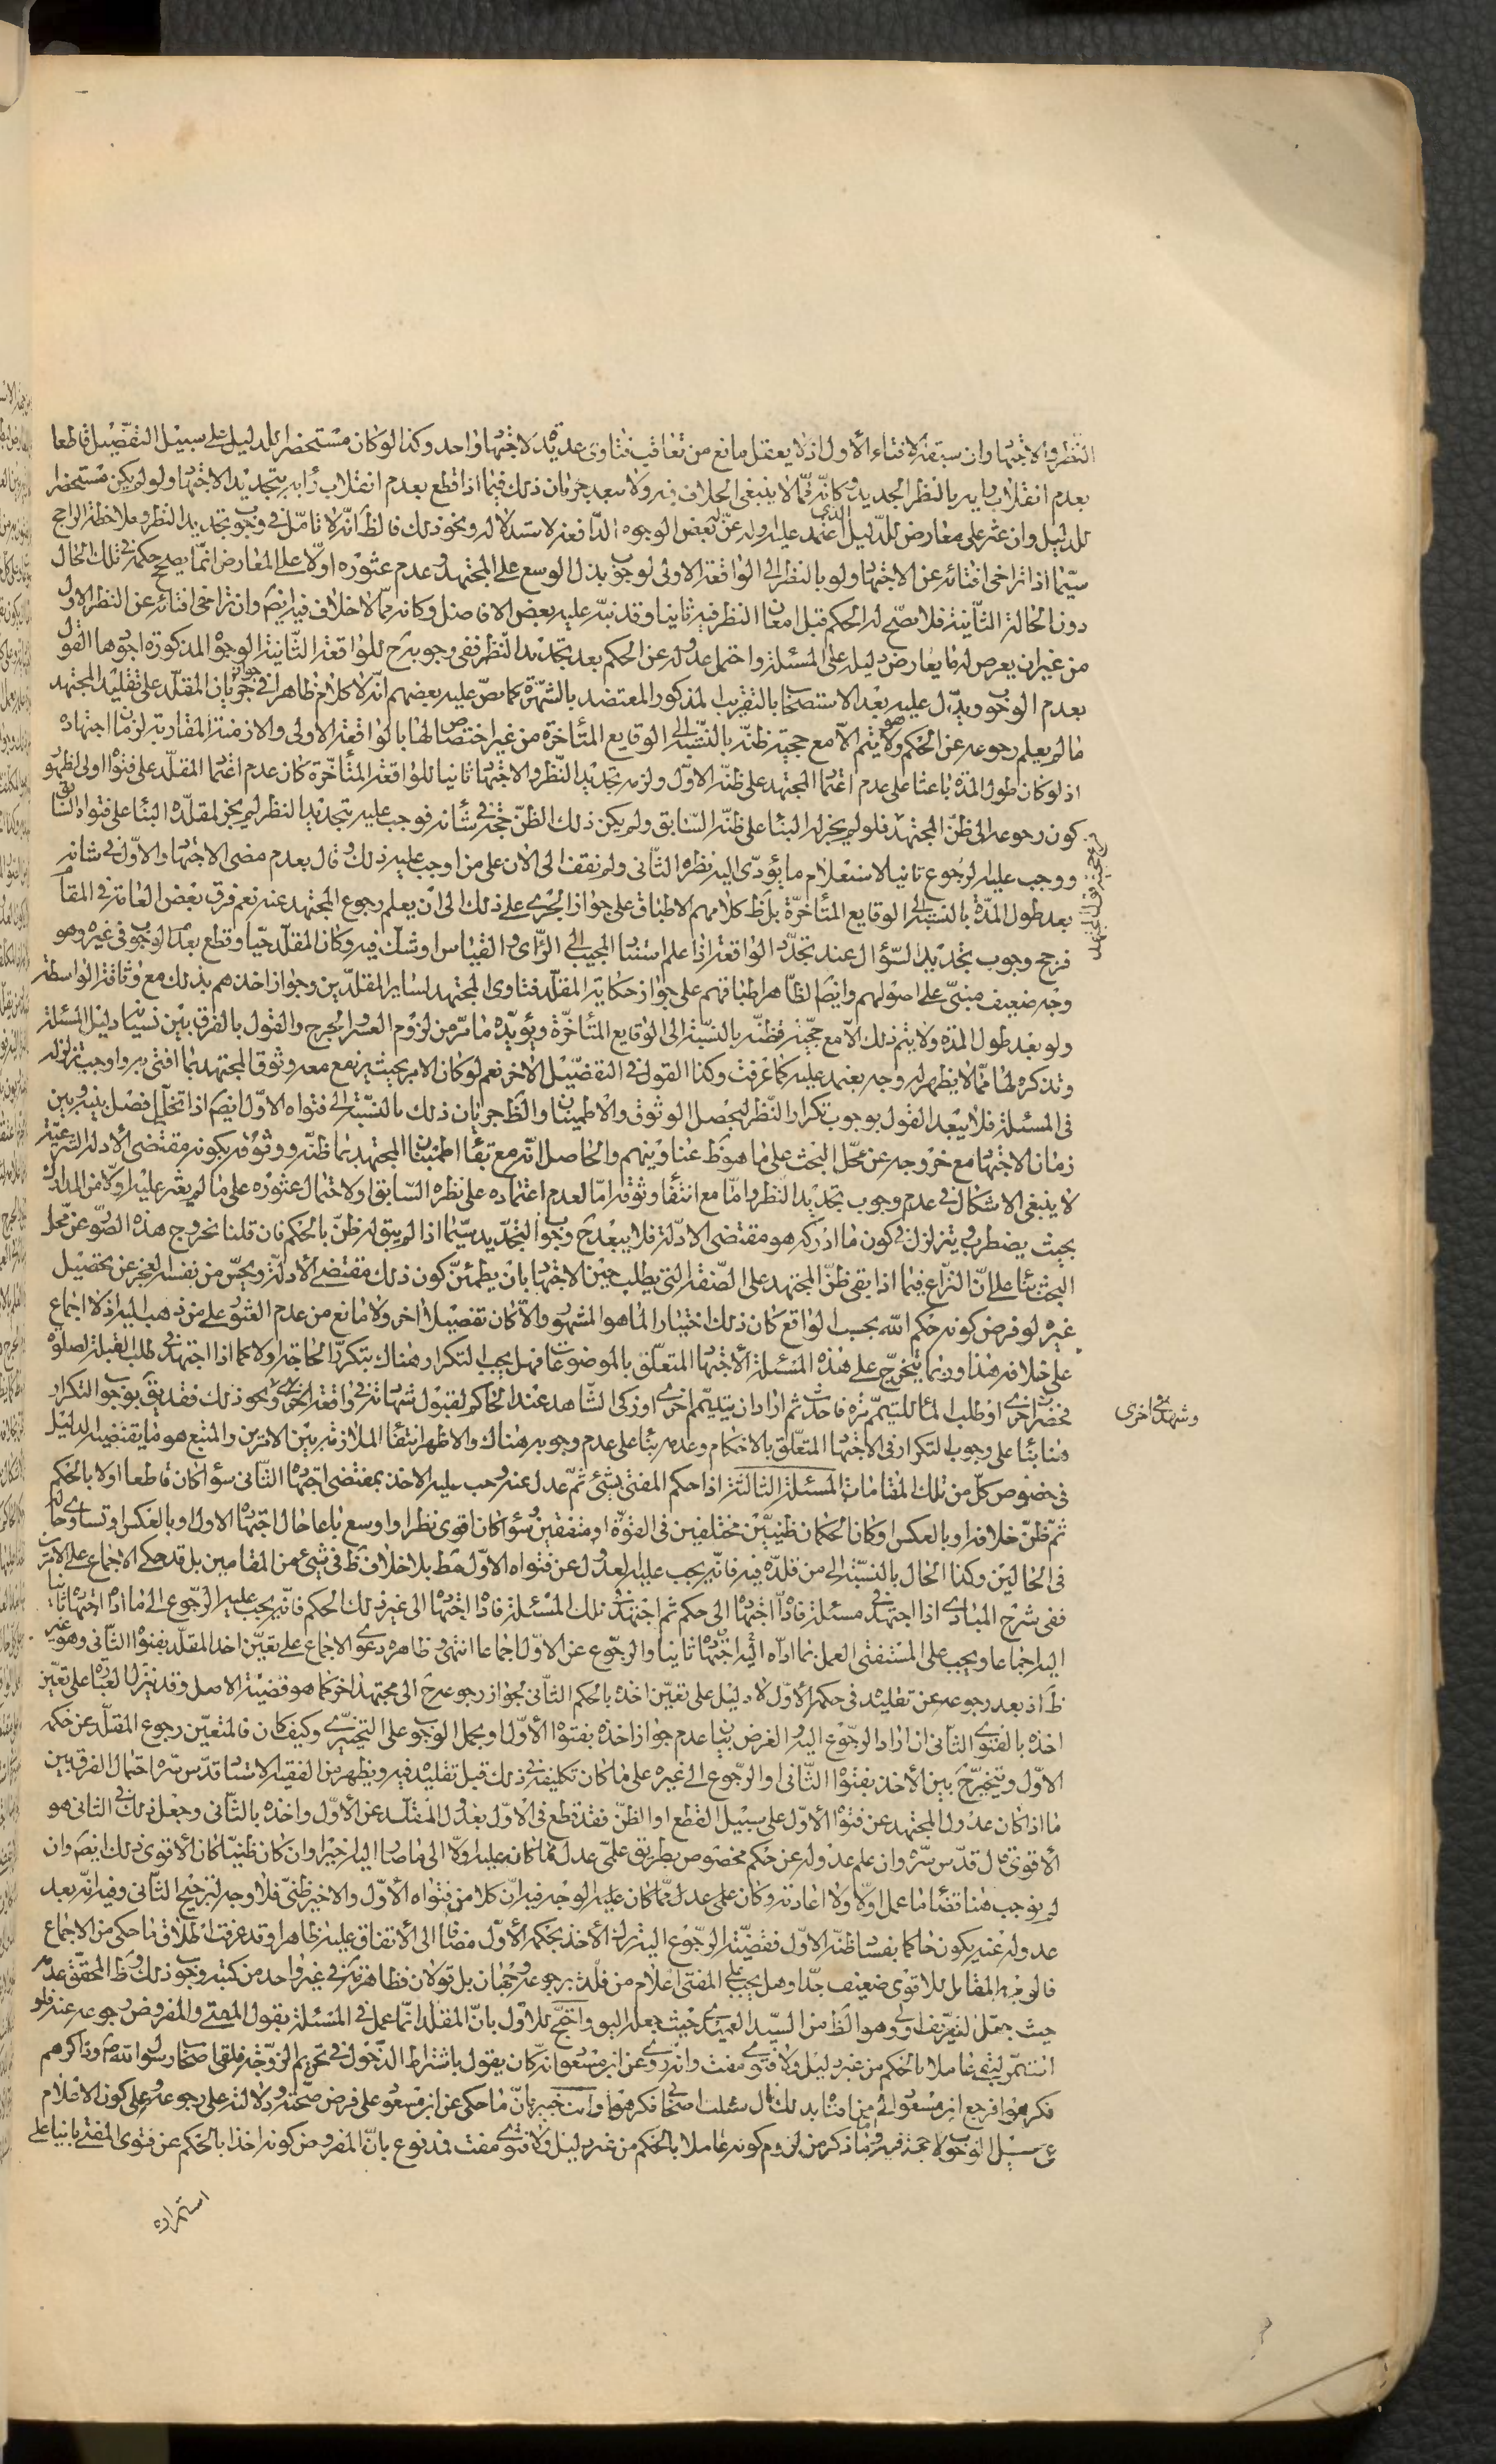 النظر والاجتهاد وان سبقه الافتاء الأول اذ لا يعقل مانع من تعاقب فتاوى عديدة لاجتهاد واحد وكذا لو كان مستحضرا للدليل على سبيل التفصيل قاطعا
بعدم انقلاب رايه بالنظر الجديد وكانّه ممّا لا ينبغي الخلاف فيه ولا يبعد جريان ذلك فيما اذا قطع بعدم انقلاب رايه بتجديد الاجتهاد ولو لم يكن مستحضرا
للدليل وان عثر على معارض للدّليل الذى اعتمد عليه او له عن بعض الوجوه الدّافعة لاستدلاله ونحو ذلك فالظ انّه لا تامّل في وجوب تجديد النظر وملاحظة الراجح
سيّما اذا تراخى افتائه عن الاجتهاد ولو بالنظر الى الواقعة الاولى لوجوب بذل الوسع على المجتهد وعدم عثوره اولا على المعارض انّما يصحح حكمه في تلك الحال
دون الحالة الثّانية فلا يصحّ له الحكم قبل امعان النظر فيه ثانيا وقد نبّه عليه بعض الافاضل وكانه ممّا لا خلاف فيه ايضا وان تراخى افتائه عن النظر الاول
من غير ان يعرض له ما يعارض دليله على المسئلة واحتمل عدوله عن الحكم بعد تجديد النظر ففي وجوبه ح للواقعة الثّانية الوجوه المذكورة اجودها القول
بعدم الوجوب ويدّل عليه بعد الاستصحاب بالتقريب المذكور المعتضد بالشهرة كما نصّ عليه بعضهم انّه لا كلام ظاهرا في جواز جريان المقلّد على تقليد المجتهد
ما لم يعلم رجوعه عن الحكم وهو لا يتم الّا مع حجية ظنّه بالنسّبة الى الوقايع المتأخرة من غير اختصاص لها بالواقعة الاولى والازمنة المقاربة لزمان اجتهاده
اذ لو كان طول المدّة باعثا على عدم اعتماد المجتهد على ظنّه الاوّل ولزمه تجديد النّظر والاجتهاد ثانيا للواقعة المتأخرة كان عدم اعتماد المقلّد على فتواه اولى لظهور
كون رجوعه الى ظنّ المجتهد فلو لم يجز له البناء على ظنّه السّابق ولم يكن ذلك الظنّ حجّة في شأنه فوجب عليه تجديد النظر لم يجز لمقلّده البناء على فتواه السّابق
ووجب عليه الرجوع ثانيا لاستعلام ما يؤدّى اليه نظره الثّانى ولم نقف الى الآن على من اوجب عليه ذلك وقال بعدم مضى الاجتهاد والاوّل في شانه
بعد طول المدّة بالنسبة الى الوقايع المتأخرّة بل ظ كلامهم الاطباق على جواز الجرى على ذلك الى ان يعلم رجوع المجتهد عنه نعم فرق بعض العامة في المقام
فرجح وجوب تجديد السّؤال عند تجدّد الواقعة اذا علم استناد المجيب الى الرّأى والقياس او شك فيه وكان المقلّد حيّا وقطع بعدم الوجوب في غيره وهو
وجه ضعيف مبنىّ على اصولهم وايضا الظّاهر اطباقهم على جواز حكاية المقلّد فتاوى المجتهد لساير المقلّدين وجواز اخذهم بذلك مع وثاقة الواسطة
ولو بعد طول المدة ولا يتم ذلك الّا مع حجّية ظنّه بالنسّبة الى الوقايع المتأخّرة ويؤيّده ما مرّ من لزوم العسر والحرج والقول بالفرق بين نسيان دليل المسئلة
وتذكره لها ممّا لا يظهر له وجه يعتمد عليه كما عرفت وكذا القول في التفصّيل الآخر نعم لو كان الامر بحيث يرتفع معه وثوق المجتهد بما افتى به واوجب تزلزله
في المسئلة فلا يبعد القول بوجوب تكرار النّظر ليحصل الوثوق والاطمينان والظ جريان ذلك بالنسّبة الى فتواه الاوّل ايضا اذا تخلّل فصل بينه وبين
زمان الاجتهاد مع خروجه عن محّل البحث على ما هو ظ عناوينهم والحاصل انّه مع بقاء اطمينان المجتهد بما ظنّه ووثوقه بكونه مقتضى الأدلة الشّرعيّة
لا ينبغي الاشكال في عدم وجوب تجديد النظر وامّا مع انتفاء وثوقه امّا لعدم اعتماده على نظره السّابق او لاحتمال عثوره على ما لم يعثر عليه اوّلا من المدارك
بحيث يضطرب ويتزلزل في كون ما ادركه هو مقتضى الادّلة فلا يبعد ح وجوب التجّديد سيّما اذا لم يبق له ظنّ بالحكم فان قلنا بخروج هذه الصّورة عن محل
البحث بناء على انّ النزاع فيما اذا بقى ظنّ المجتهد على الصّفة التى يطلب حين الاجتهاد بان يطمئنّ كون ذلك مقتضى الأدلة ويحسّ من نفسه العجز عن تحصيل
غيره لو فرض كونه حكم الله بحسب الواقع كان ذلك اختيارا لما هو المشهور والّا كان تفصيلا آخر ولا مانع من عدم العثور على من ذهب اليه اذ لا اجماع
على خلافه هذا وربما يتخرّج على هذه المسئلة الأجتهاد المتعلّق بالموضوعات فهل يجب التكرار هناك بتكرّر الحاجة اولا كما اذا اجتهد في طلب القبلة لصلوة
فحضرت اخرى او طلب الماء للتيمّم مرّة فاحدث ثم اراد ان يتيمّم اخرى او زكى الشّاهد عند الحاكم لقبول شهادته في واقعة ونحو ذلك فقد يق بوجوب التكرار
وشهد في اخرى
هنا بناء على وجوب التكرار في الاجتهاد المتعلّق بالاحكام وعدمه بناء على عدم وجوبه هناك والاظهر انتفاء الملازمة بين الامرين والمتبع هو ما يقتضيه الدليل
في خصوص كلّ من تلك المقامات المسئلة الثالثة اذا حكم المفتى بشئ ثمّ عدل عنه وجب عليه الاخذ بمقتضى اجتهاده الثّانى سواء كان قاطعا اولا بالحكم
ثمّ ظنّ خلافه او بالعكس او كان الحكمان ظنيّين مختلفين في القوّة او متفقين وسواء كان اقوى نظرا واوسع باعا حال اجتهاده الاول او بالعكس او تساوى حاله
في الحالين وكذا الحال بالنسّبة الى من قلّده فيه فانّه يجب عليه العدول عن فتواه الاوّل قط بلا خلاف ظ في شئ من المقامين بل قد حكى الاجماع على الامرين
ففي شرح المبادى اذا اجتهد في مسئلة فادّاه اجتهاده الى حكم ثم اجتهد في تلك المسئلة فادّاه اجتهاده الى غير ذلك الحكم فانّه يجب عليه الرّجوع الى ما ادّاه اجتهاده ثانيا
اليه اجماعا ويجب على المستفتى العمل بما ادّاه اليه اجتهاده ثانيا والرجّوع عن الاوّل اجماعا انتهى وظاهره دعوى الاجماع على تعيّن اخذ المقلّد بفتواه الثّانى وهو غير
ظ اذ بعد رجوعه عن تقليده في حكمه الأوّل لا دليل على تعيّن اخذه بالحكم الثّانى لجواز رجوعه ح الى مجتهد آخر كما هو قضيّة الاصل وقد ينزّل العبارة على تعيّن
اخذه بالفتوى الثّانى ان اراد الرجّوع اليه والغرض بيان عدم جواز اخذه بفتواه الأوّل او يحمل الوجوب على التخييرى وكيف كان فالمتعيّن رجوع المقلّد عن حكمه
الاوّل ويتخيّر ح بين الأخذ بفتواه الثّانى او الرجّوع الى غيره على ما كان تكليفه في ذلك قبل تقليده فيه ويظهر من الفقيه الاستاد قدّس سّره احتمال الفرق بين
ما اذا كان عدول المجتهد عن فتواه الأوّل على سبيل القطع او الظنّ فقد قطع في الاوّل بعدول المقلّد عن الأوّل واخذه بالثّانى وجعل ذلك في الثّانى هو
الأقوى قال قدّس سّره وان علم عدوله عن حكم مخصوص بطريق علمىّ عدل عمّا كان عليه اوّلا الى ما صار اليه اخيرا وان كان ظنيّا كان الأقوى ذلك ايضا وان
لم يوجب هنا قضاء ما عمل اوّلا ولا اعادته وكان على عدل ممّا كان عليه الوجه فيه انّ كلا من فتواه الأوّل والاخير ظنىّ فلا وجه لترجيح الثّانى وفيه انّه بعد
عدوله عنه يكون حاكما بفساد ظنّه الاوّل فقضّية الرجّوع اليه ترك الأخذ بحكمه الأوّل مضافا الى الأتفاق عليه ظاهرا وقد عرفت اطلاق ما حكى من الاجماع
فالوجه المقابل للاقوى ضعيف جدّا وهل يجب على المفتى اعلام من قلّده برجوعه وجهان بل قولان فظاهر في غير واحد من كتبه وجوب ذلك وظ المحقّق عدمه
حيث جعل التعريف اولى وهو الظ من السيّد العميدى حيث جعله اليق واحتجّ للاوّل بانّ المقلّد انّما عمل في المسئلة بقول المفتى والمفروض رجوعه عنه فلو
استمرّ لبقى عاملا بالحكم من غير دليل ولا فتوى مفت وانه روى عن ابن مسعود انّه كان يقول باشتراط الدّخول في تحريم ام الزوّجة فلقى اصحاب رسول الله ص وذاكرهم
فكرهوا فرجع ابن مسعود الى من افتاه بذلك قال سئلت اصحابى فكرهوا وانت خبير بانّ ما حكى عن ابن مسعود على فرض صحّته ودلالته على رجوعه وعلى كون الاعلام
على سبيل الوجوب لا حجة فيه وما ذكر من لزوم كونه عاملا بالحكم من غير دليل ولا فتوى مفت مدفوع بانّ المفروض كونه اخذا بالحكم عن فتوى المفتى بانيا على
استمراره